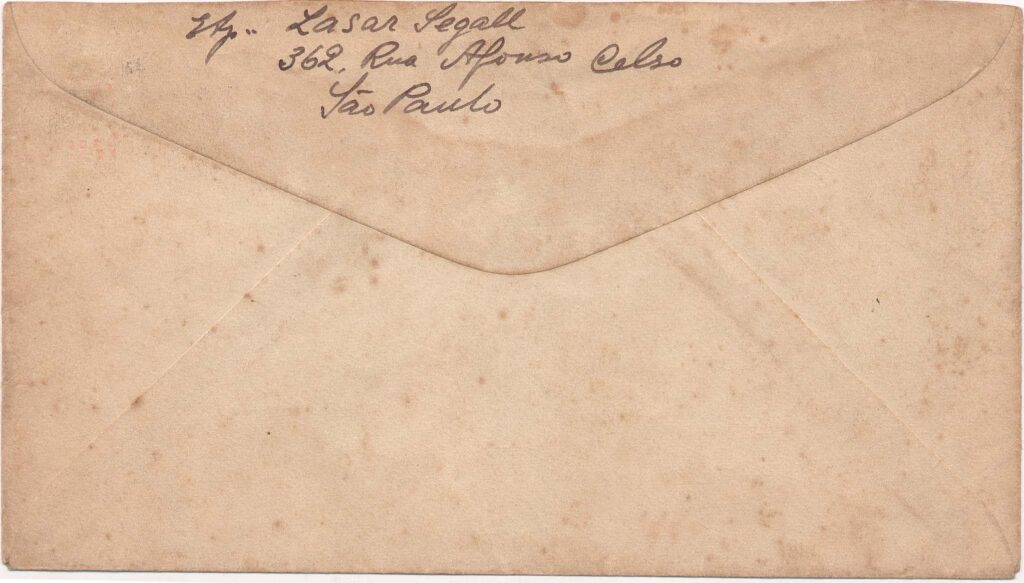 Exp.. Lasar Segall
362, Rua Afonso Celso
São Paulo